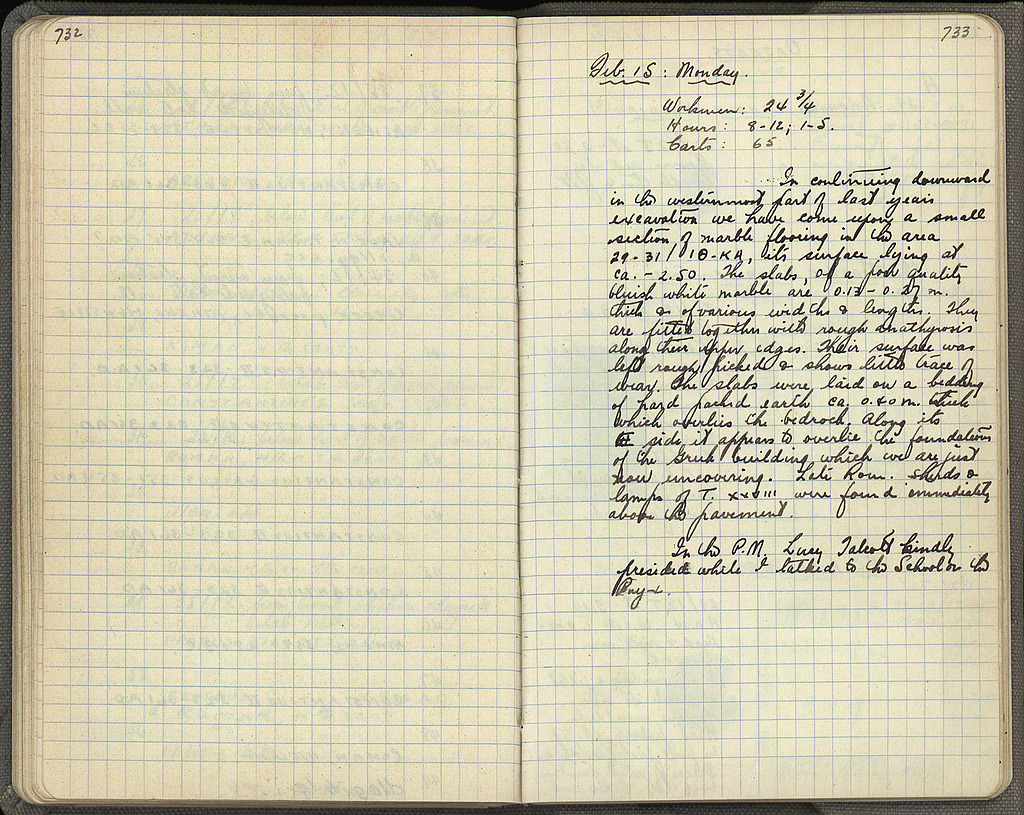 732
733
Feb. 15 : Monday.
Workmen: 24 3/4
Hours: 8-12; 1-5.
Carts: 65
In continuing downward
in the westernmost part of last years
excavation we have come upon a small
section of marble flooring in the area
29-31/18-KA, its surface lying at
ca. - 2.50. The slabs, of a poor quality
bluish white marble are 0.13-0.27 m.
thick & of various widths & lengths. They
are fitted together with rough anathyrosis
along their upper edges. Their surface was
left rough picked & shows little trace of
wear. The slabs were laid on a bedding
of hard packed earth ca. 0.40 m. thick
which overlies the bedrock. Along its
side it appears to overlie the foundations
of the Greek building which we are just
now uncovering. Late Rom. sherds &
lamps of T. XXVIII were found immediately
above the pavement.
In the P.M. Lucy Talcott kindly
presided while I talked to the School on the
Pnyx.